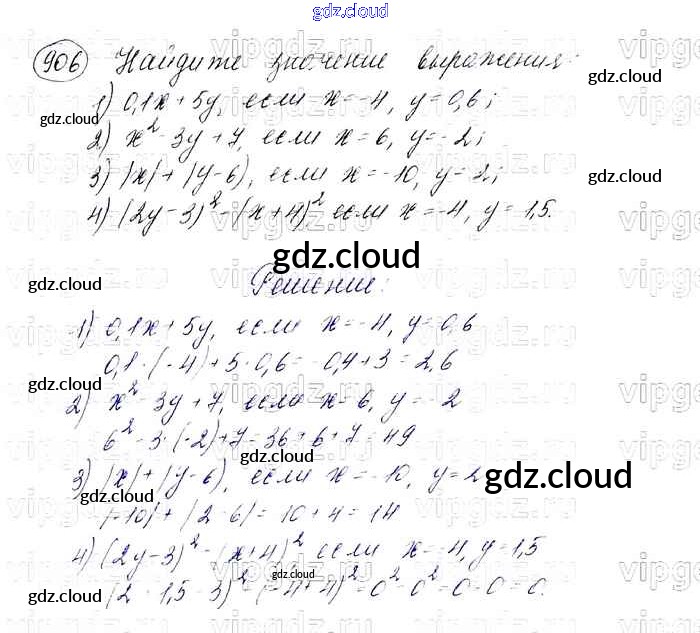 gdz.cloud
906 Найдите значение выражения:
1) 0,1x + 5y, если x = -4, y = 0,6;
2) x² - 3y + 7, если x = 6, y = -2;
3) |x| + |y - 6|, если x = -10, y = 2;
4) (2y - 3)² - (x + 4)² если x = -4, y = 1,5.
Решение:
1) 0,1x + 5y, если x = -4, y = 0,6
0,1 · (-4) + 5 · 0,6 = -0,4 + 3 = 2,6
2) x² - 3y + 7, если x = 6, y = -2
6² - 3 · (-2) + 7 = 36 + 6 + 7 = 49
3) |x| + |y - 6|, если x = -10, y = 2
|-10| + |2 - 6| = 10 + 4 = 14
4) (2y - 3)² - (x + 4)² если x = -4, y = 1,5
(2 · 1,5 - 3)² - (-4 + 4)² = 0² - 0² = 0 - 0 = 0.
gdz.cloud
gdz.cloud
gdz.cloud
gdz.cloud
gdz.cloud
gdz.cloud
gdz.cloud
gdz.cloud
gdz.cloud
gdz.cloud
gdz.cloud
gdz.cloud